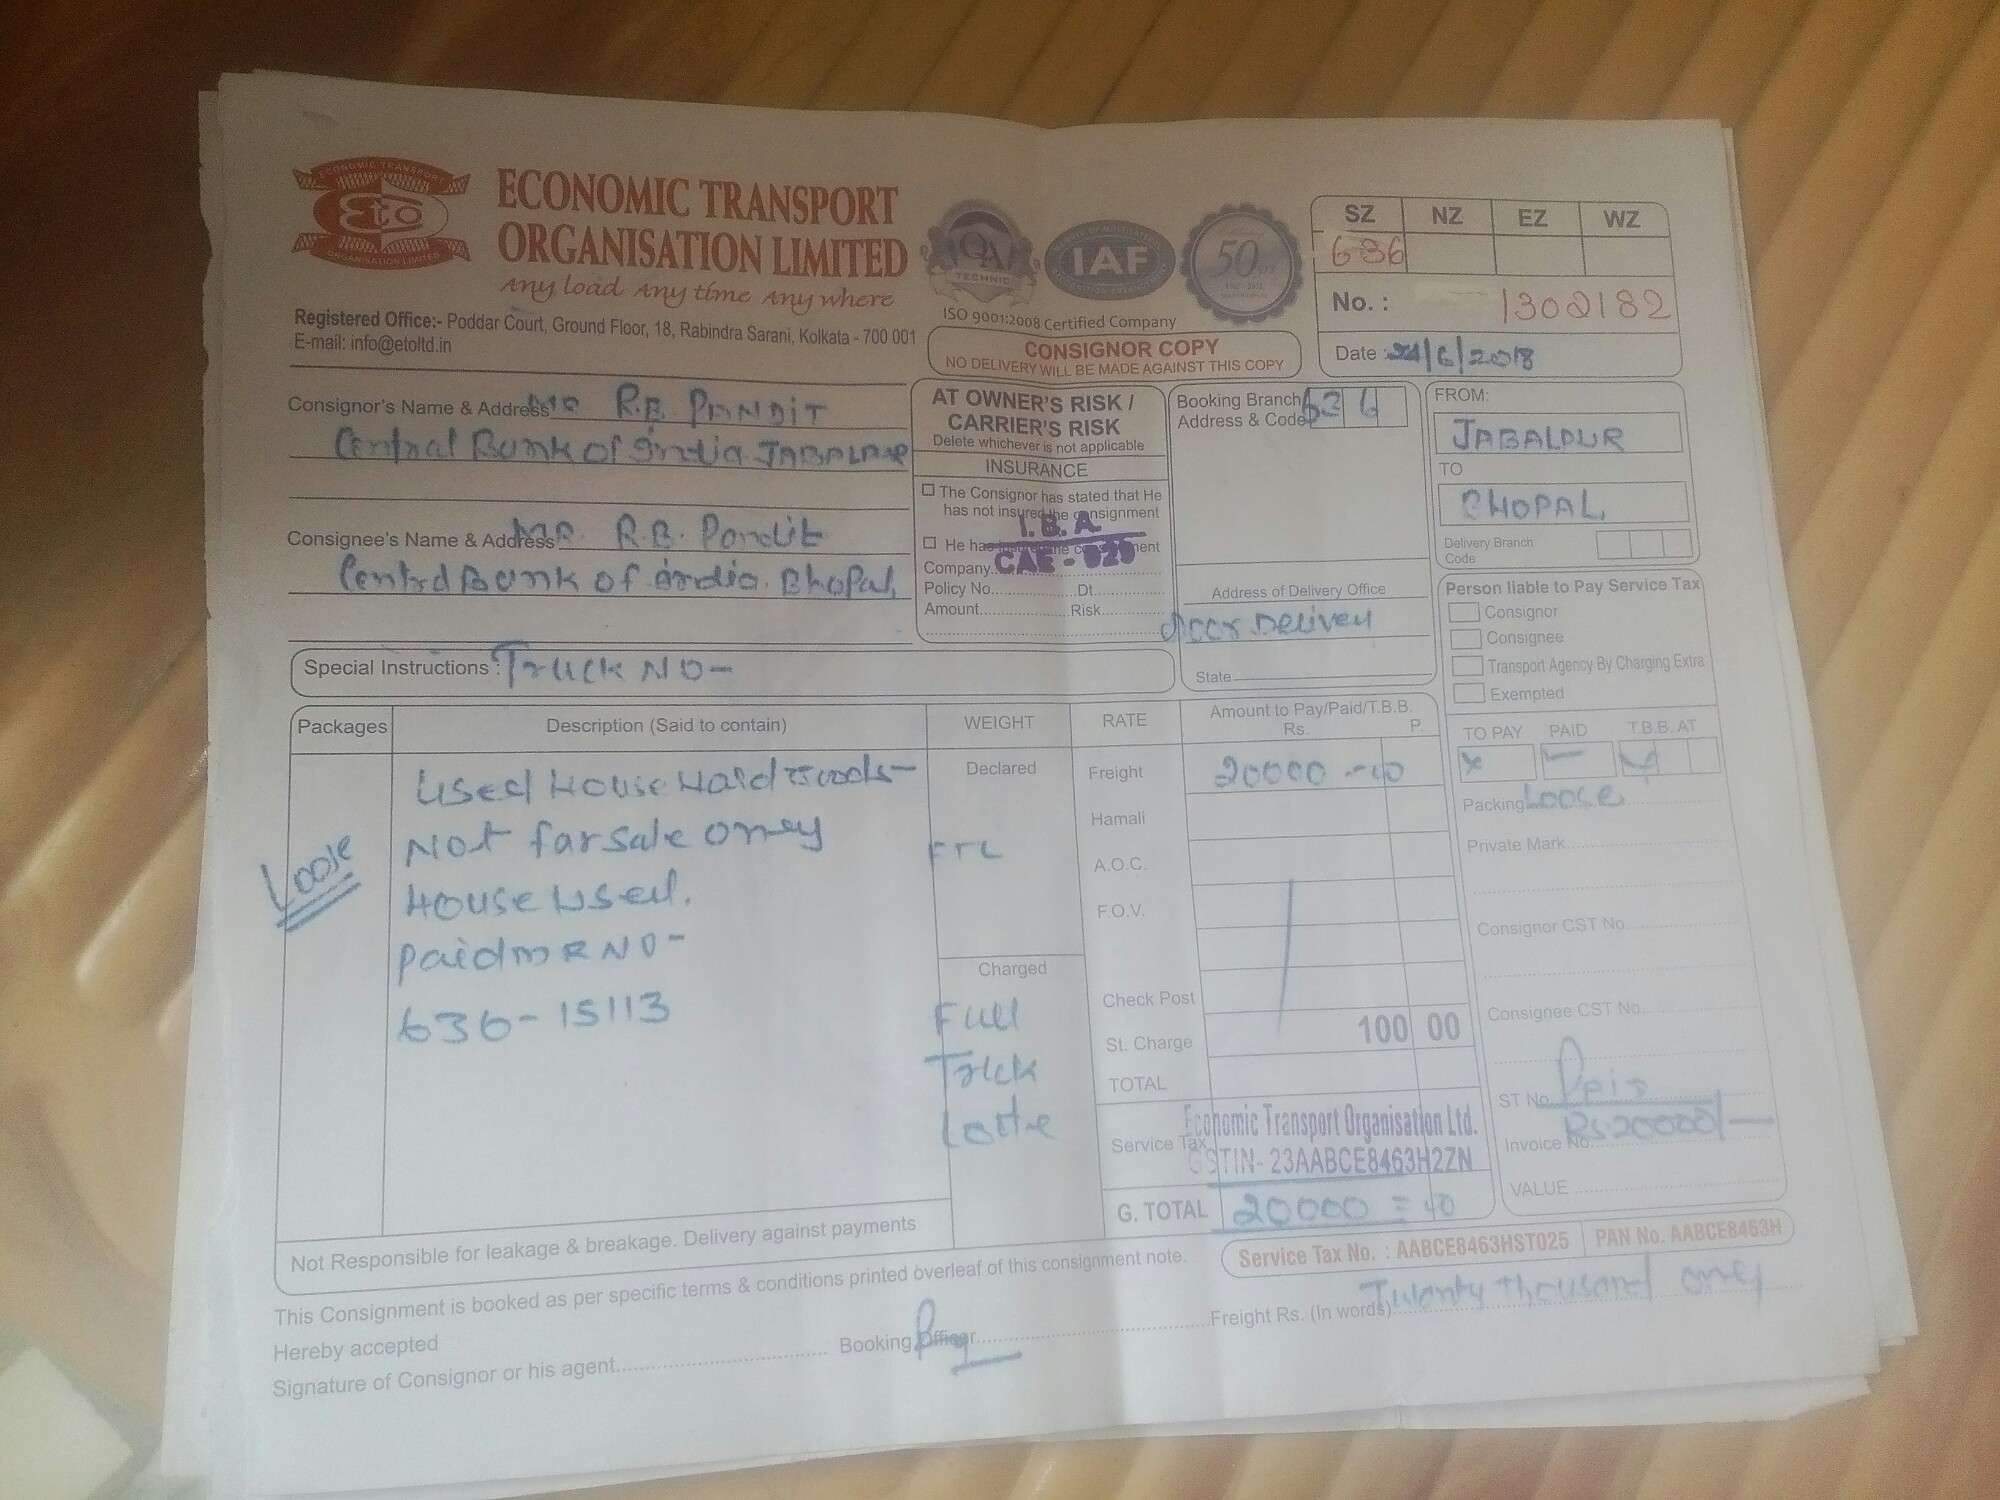 ECONOMIC TRANSPORT
ORGANISATION LIMITED
Eto
ECONOMIC TRANSPORT
ORGANISATION LIMITED
Any load Any time Any where
Registered Office:- Poddar Court, Ground Floor, 18, Rabindra Sarani, Kolkata - 700 001
E-mail: info@etoltd.in
QA
TECHNIC
IAF
50
ISO 9001:2008 Certified Company
CONSIGNOR COPY
NO DELIVERY WILL BE MADE AGAINST THIS COPY
SZ NZ EZ WZ
636
No. : 1302182
Date : 24/6/2018
Consignor's Name & Address MR R.B. PANDIT
Central Bank of India JABALPUR
Consignee's Name & Address MR. R.B. Pandit
Central Bank of India. Bhopal,
AT OWNER'S RISK /
CARRIER'S RISK
Delete whichever is not applicable
INSURANCE
The Consignor has stated that He
has not insured the consignment
I.B.A
CAE - 020
He has
Company
Policy No. Dt.
Amount Risk
Booking Branch 636
Address & Code
Address of Delivery Office
Door Delivery
State
FROM:
JABALPUR
TO
BHOPAL,
Delivery Branch
Code
Person liable to Pay Service Tax
Consignor
Consignee
Transport Agency By Charging Extra
Exempted
Special Instructions : Truck NO-
Packages Description (Said to contain) WEIGHT RATE Amount to Pay/Paid/T.B.B.
Rs. P.
TO PAY PAID T.B.B. AT
Loose
Used House Hold Goods-
Not for sale only
House used.
Paid MR NO-
636-15113
Declared
FTL
Charged
Full
Truck
Freight 20000
Hamali
A.O.C.
F.O.V.
Check Post
St. Charge 100 00
TOTAL
Service Tax
Economic Transport Organisation Ltd.
GSTIN- 23AABCE8463H2ZN
G. TOTAL 20000
Packing Loose
Private Mark
Consignor CST No.
Consignee CST No.
ST No. Paid
Rs. 20000/-
Invoice No.
VALUE
Service Tax No. : AABCE8463HST025 PAN No. AABCE8463H
Not Responsible for leakage & breakage. Delivery against payments
This Consignment is booked as per specific terms & conditions printed overleaf of this consignment note.
Hereby accepted
Signature of Consignor or his agent
Booking Officer
Freight Rs. (In words) Twenty thousand only